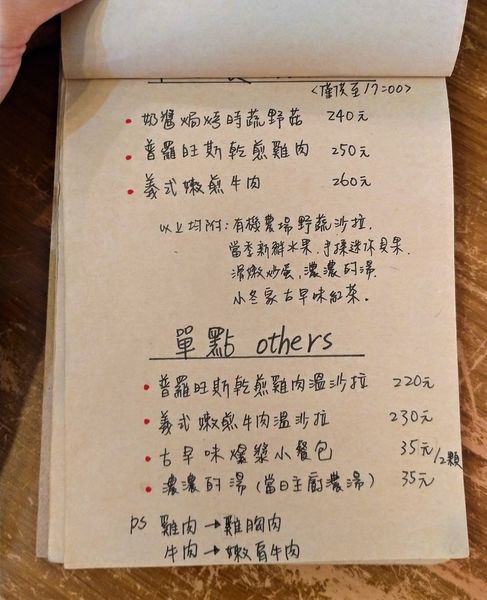 <僅供至17:00>
• 奶醬焗烤時蔬野菇 240元
• 普羅旺斯乾煎雞肉 250元
• 義式嫩煎牛肉 260元
以上均附:有機農場野蔬沙拉.
當季新鮮水果.手揉迷你貝果.
滑嫩炒蛋,濃濃的湯.
小冬家古早味紅茶。
單點 others
• 普羅旺斯乾煎雞肉溫沙拉 220元
• 義式嫩煎牛肉溫沙拉 230元
• 古早味爆漿小餐包 35元/2顆
• 濃濃的湯(當日主廚濃湯) 35元
ps 雞肉→雞胸肉
牛肉→嫩肩牛肉